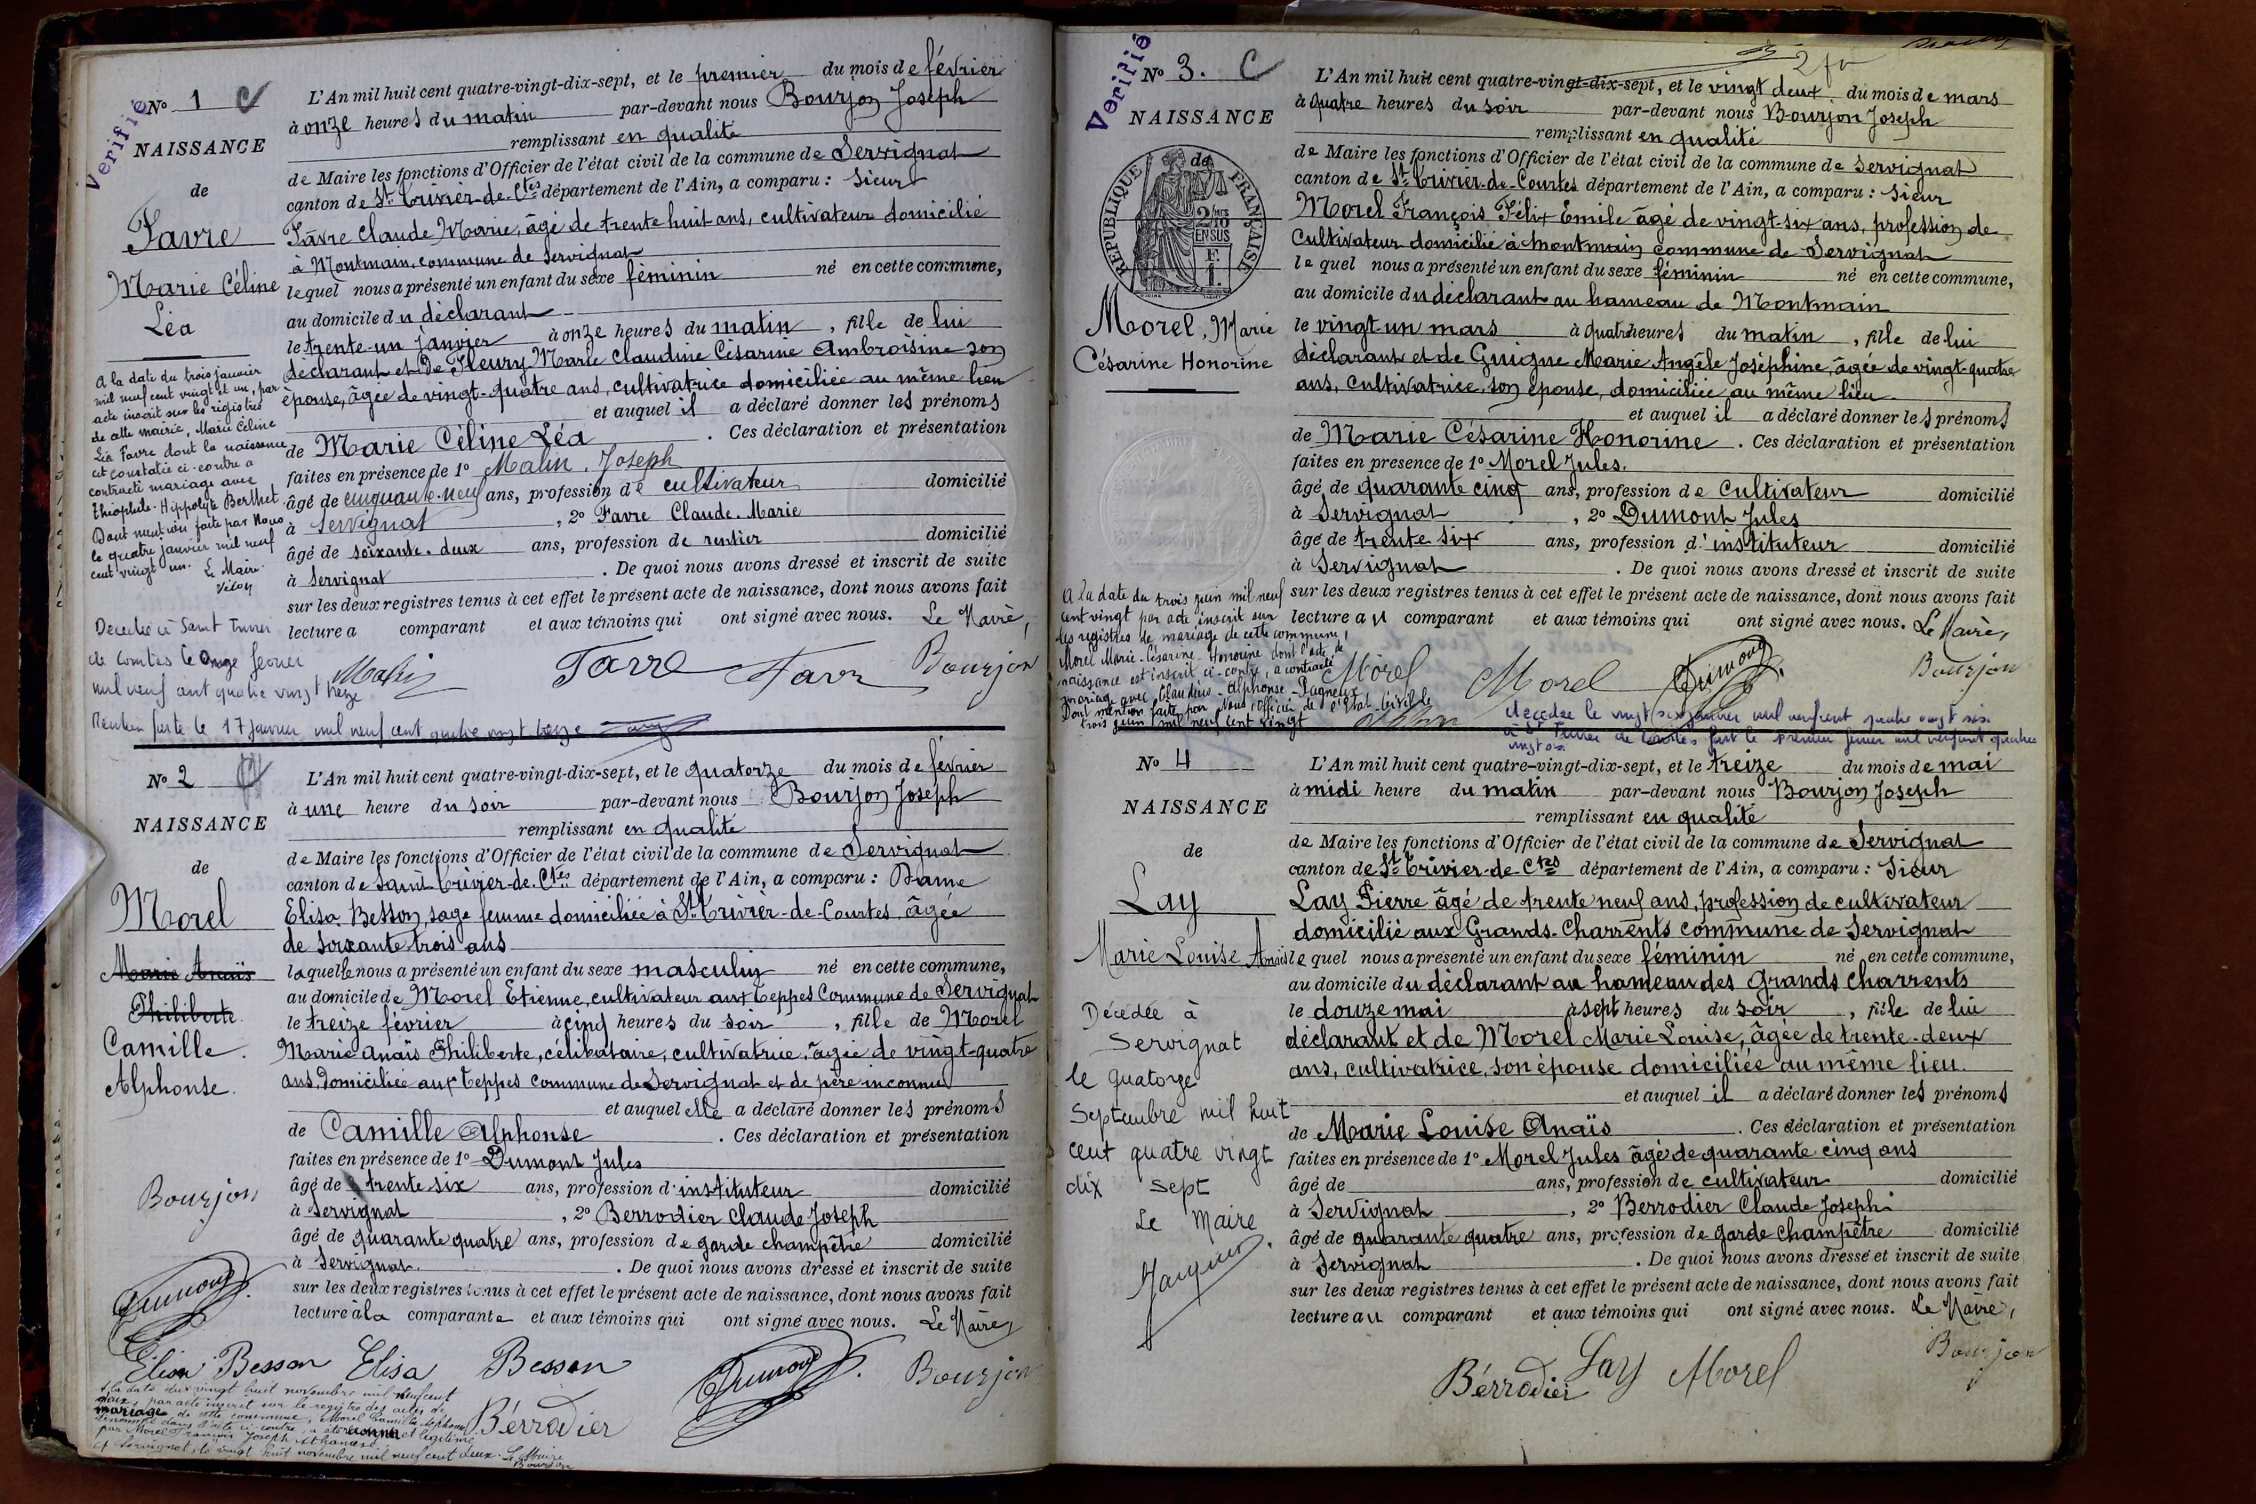 Verifié
N° 1
NAISSANCE
de
Favre
Marie Céline
Léa
L'An mil huit cent quatre-vingt-dix-sept, et le premier du mois de février
à onze heures du matin par-devant nous Bourjon Joseph
remplissant en qualité
de Maire les fonctions d'Officier de l'état civil de la commune de Servignat
canton de St Trivier-de-Ctes département de l'Ain, a comparu : Sieur
Favre Claude Marie, âgé de trente huit ans, cultivateur domicilié
à Montmain, commune de Servignat
lequel nous a présenté un enfant du sexe féminin né en cette commune,
au domicile du déclarant
le trente-un janvier à onze heures du matin, fille de lui
déclarant et de Fleury Marie Claudine Césarine Ambroisine son
épouse, âgée de vingt-quatre ans, cultivatrice domiciliée au même lieu
et auquel il a déclaré donner les prénoms
de Marie Céline Léa. Ces déclaration et présentation
faites en présence de 1° Malin Joseph
âgé de cinquante-neuf ans, profession de cultivateur domicilié
à Servignat, 2° Favre Claude Marie
âgé de soixante-deux ans, profession de rentier domicilié
à Servignat. De quoi nous avons dressé et inscrit de suite
sur les deux registres tenus à cet effet le présent acte de naissance, dont nous avons fait
lecture a comparant et aux témoins qui ont signé avec nous. Le Maire,
Malin Favre Favre Bourjon
A la date du trois janvier
mil neuf cent vingt et un, par
acte inscrit sur les registres
de cette mairie, Marie Céline
Léa Favre dont la naissance
est constatée ci-contre a
contracté mariage avec
Théophile-Hippolyte Berthet
Dont mention faite par Nous
le quatre janvier mil neuf
cent vingt un. Le Maire
Décédée à Saint Trivier
de Courtes le onze
mil neuf cent quatre vingt treize
Mention faite le 17 janvier mil neuf cent quatre vingt treize
N° 2
NAISSANCE
de
Morel
Marie Anaïs
Philiberte
Camille
Alphonse.
Bourjon
L'An mil huit cent quatre-vingt-dix-sept, et le quatorze du mois de février
à une heure du soir par-devant nous Bourjon Joseph
remplissant en qualité
de Maire les fonctions d'Officier de l'état civil de la commune de Servignat
canton de Saint Trivier-de-Ctes département de l'Ain, a comparu : Dame
Elisa Besson, sage femme domiciliée à St Trivier-de-Courtes âgée
de soixante trois ans
laquelle nous a présenté un enfant du sexe masculin né en cette commune,
au domicile de Morel Etienne, cultivateur aux Teppes Commune de Servignat
le treize février à cinq heures du soir, fille de Morel
Marie Anaïs Philiberte, célibataire, cultivatrice, âgée de vingt-quatre
ans, domiciliée aux Teppes commune de Servignat et de père inconnu
et auquel elle a déclaré donner les prénoms
de Camille Alphonse. Ces déclaration et présentation
faites en présence de 1° Dumont Jules
âgé de trente six ans, profession d'instituteur domicilié
à Servignat, 2° Berrodier Claude Joseph
âgé de quarante quatre ans, profession de garde champêtre domicilié
à Servignat. De quoi nous avons dressé et inscrit de suite
sur les deux registres tenus à cet effet le présent acte de naissance, dont nous avons fait
lecture à la comparante et aux témoins qui ont signé avec nous. Le Maire,
Dumont
Elisa Besson Elisa Besson Dumont Bourjon
Bérrodier
A la date du vingt huit novembre mil neuf cent
deux, par acte inscrit sur le registre des actes de
mariage de cette commune, Morel Camille Alphonse
dénommé dans l'acte ci-contre, a été reconnu et légitimé
par Morel François Joseph
A Servignat, le vingt huit novembre mil neuf cent deux. Le Maire
Bourjon
2
Verifié
N° 3.
NAISSANCE
de
RÉPUBLIQUE FRANÇAISE
2/10
EN SUS
Morel, Marie
Césarine Honorine
L'An mil huit cent quatre-vingt-dix-sept, et le vingt deux du mois de mars
à quatre heures du soir par-devant nous Bourjon Joseph
remplissant en qualité
de Maire les fonctions d'Officier de l'état civil de la commune de Servignat
canton de St Trivier-de-Courtes département de l'Ain, a comparu : Sieur
Morel François Félix Emile âgé de vingt-six ans, profession de
Cultivateur domicilié à Montmain commune de Servignat
lequel nous a présenté un enfant du sexe féminin né en cette commune,
au domicile du déclarant au hameau de Montmain
le vingt-un mars à quatre heures du matin, fille de lui
déclarant et de Guigue Marie Angèle Joséphine, âgée de vingt-quatre
ans, cultivatrice, son épouse, domiciliée au même lieu
et auquel il a déclaré donner les prénoms
de Marie Césarine Honorine. Ces déclaration et présentation
faites en presence de 1° Morel Jules.
âgé de quarante cinq ans, profession de Cultivateur domicilié
à Servignat, 2° Dumont Jules
âgé de trente six ans, profession d'instituteur domicilié
à Servignat. De quoi nous avons dressé et inscrit de suite
sur les deux registres tenus à cet effet le présent acte de naissance, dont nous avons fait
lecture au comparant et aux témoins qui ont signé avec nous. Le Maire,
Morel Morel Dumont Bourjon
A la date du trois juin mil neuf
cent vingt par acte inscrit sur
les registres de mariage de cette commune,
Morel Marie-Césarine-Honorine dont l'acte de
naissance est inscrit ci-contre, a contracté
mariage avec Claudius-Alphonse-Pagneux
Dont mention faite par Nous Officier de l'Etat-Civil le
trois juin mil neuf cent vingt
décédée le vingt six janvier mil neuf cent quatre vingt six
à St Trivier de Courtes fait le premier
N° 4
NAISSANCE
de
Lay
Marie Louise Anaïs
L'An mil huit cent quatre-vingt-dix-sept, et le treize du mois de mai
à midi heure du matin par-devant nous Bourjon Joseph
remplissant en qualité
de Maire les fonctions d'Officier de l'état civil de la commune de Servignat
canton de St Trivier-de-Ctes département de l'Ain, a comparu : Sieur
Lay Pierre âgé de trente neuf ans, profession de cultivateur
domicilié aux Grands-Charrents commune de Servignat
lequel nous a présenté un enfant du sexe féminin né en cette commune,
au domicile du déclarant au hameau des Grands Charrents
le douze mai à sept heures du soir, fille de lui
déclarant et de Morel Marie Louise, âgée de trente-deux
ans, cultivatrice, son épouse domiciliée au même lieu.
et auquel il a déclaré donner les prénoms
de Marie Louise Anaïs. Ces déclaration et présentation
faites en présence de 1° Morel Jules âgé de quarante cinq ans
âgé de ans, profession de cultivateur domicilié
à Servignat, 2° Berrodier Claude Joseph
âgé de quarante quatre ans, profession de garde champêtre domicilié
à Servignat. De quoi nous avons dressé et inscrit de suite
sur les deux registres tenus à cet effet le présent acte de naissance, dont nous avons fait
lecture au comparant et aux témoins qui ont signé avec nous. Le Maire,
Bérrodier Lay Morel Bourjon
Décédée à
Servignat
le quatorze
Septembre mil huit
cent quatre vingt
dix sept
Le Maire